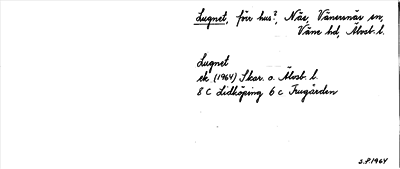 Lugnet, förr hus?, Näs, Vänersnäs sn,
Väne hd, Älvsb. l.
Lugnet
ek (1964) Skar. o. Älvsb. l.
8 C Lidköping 6 c Frugården
S.P. 1964